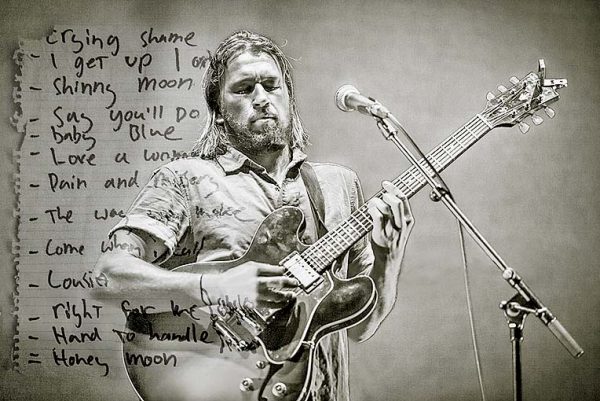 - crying shame
- I get up I
- Shinny moon
- Say you'll Do
- baby Blue
- Love a woman
- Pain and
- The way make
- Come when
- Cousin
- right for me
- Hand to handle
= Honey moon